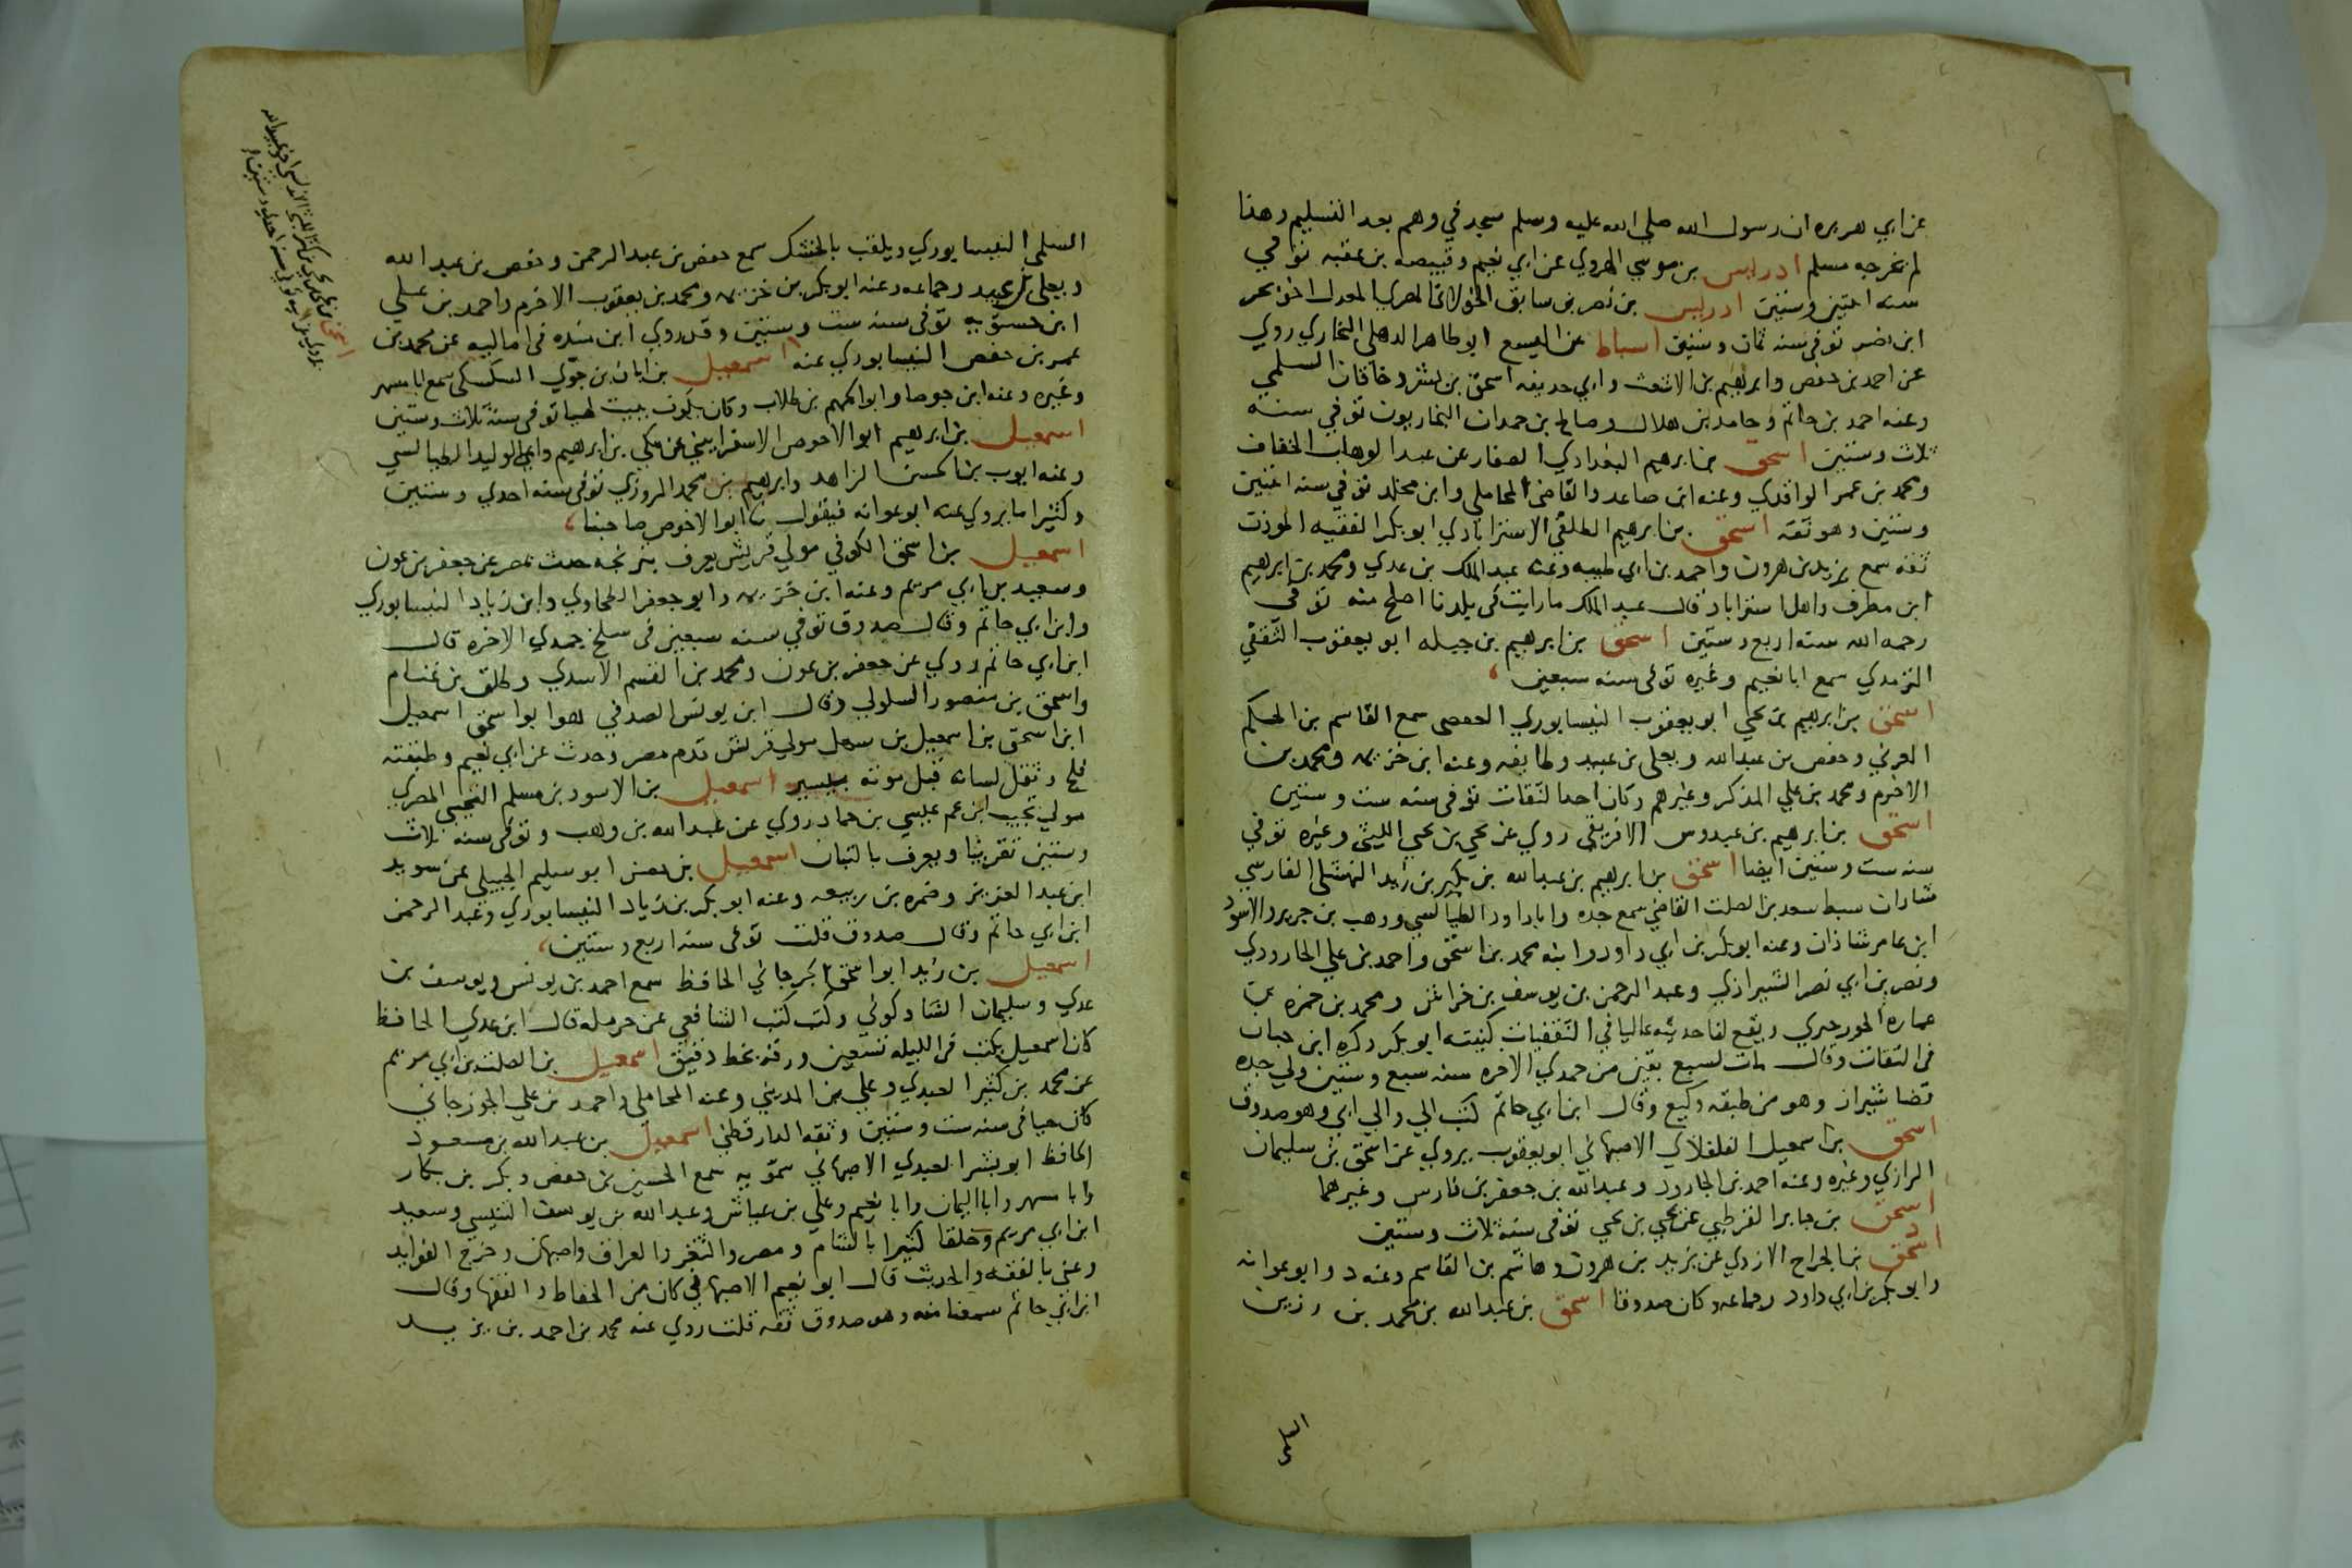 عن ابي هريره ان رسول الله صلي الله عليه وسلم سجد في وهم بعد التسليم وهذا
لم يخرجه مسلم ادريس بن موسي الهروي عن ابي نعيم وقبيصه بن عقبه توفي
سنه اثنتين وستين ادريس بن نصر بن سابق الخولاني المصري المعدل اخو بحر
ابن نصر توفي سنه ثمان وستين اسباط بن اليسع ابو طاهر الذهلي البخاري روي
عن احمد بن حفص وابرهيم بن الاشعث وابي حذيفه اسحق بن بشر وخاقان السلمي
وعنه احمد بن حاتم وحامد بن هلال وصالح بن حمدان البخاريون توفي سنه
ثلاث وستين اسحق بن ابرهيم البغدادي الصفار عن عبد الوهاب الخفاف
ومحمد بن عمر الواقدي وعنه ابن صاعد والقاضي المحاملي وابن مخلد توفي سنه اثنتين
وستين وهو ثقه اسحق بن ابرهيم الطلقي الاستراباذي ابو بكر الفقيه الموذن
ثقه سمع يزيد بن هرون واحمد بن ابي طيبه وعنه عبد الملك بن عدي ومحمد بن ابرهيم
ابن مطرف واهل استراباذ قال عبد الملك ما رايت في بلدنا اصلح منه توفي
رحمه الله سنه اربع وستين اسحق بن ابرهيم بن جبله ابو يعقوب الثقفي
الترمذي سمع ابا نعيم وغيره توفي سنه سبعين
اسحق بن ابرهيم بن يحي ابو يعقوب النيسابوري العفصي سمع القاسم بن الحكم
العرني وحفص بن عبد الله ويعلي بن عبيد وطايفه وعنه ابن خزيمه ومحمد بن
الاخرم ومحمد بن علي المذكر وغيرهم وكان احد الثقات توفي سنه ست وستين
اسحق بن ابرهيم بن عبدوس الافريقي روي عن يحي بن يحي الليثي وغيره توفي
سنه ست وستين ايضا اسحق بن ابرهيم بن عبد الله بن بكير بن زيد النهشلي الفارسي
شاذان سبط سعد بن الصلت القاضي سمع جده وابا داود الطيالسي ووهب بن جرير والاسود
ابن عامر شاذان وعنه ابو بكر بن ابي داود وابنه محمد بن اسحق واحمد بن علي الجارودي
ونصر بن ابي نصر الشيرازي وعبد الرحمن بن يوسف بن خراش ومحمد بن حمزه بن
عماره الجورجيري ويقع لنا حديثه عاليا في الثقفيات كنيته ابو بكر ذكره ابن حبان
في الثقات وقال مات لسبع بقين من جمدي الاخره سنه سبع وستين ولي جده
قضا شيراز وهو من طبقه وكيع وقال ابن ابي حاتم كتب الي والي ابي وهو صدوق
اسحق بن اسمعيل الفلفلاني الاصبهاني ابو يعقوب يروي عن اسحق بن سليمان
الرازي وغيره وعنه احمد بن الجارود وعبد الله بن جعفر بن فارس وغيرهما
اسحق بن جابر القرطبي عن يحي بن يحي توفي سنه ثلاث وستين
اسحق بن الجراح الازدي عن يزيد بن هرون وهاشم بن القاسم وعنه د وابو عوانه
وابو بكر بن ابي داود وجماعه وكان صدوقا اسحق بن عبد الله بن محمد بن رزين
السلمي
السلمي النيسابوري ويلقب بالخشك سمع حفص بن عبد الرحمن وحفص بن عبد الله
ويعلي بن عبيد وجماعه وعنه ابو بكر بن خزيمه ومحمد بن يعقوب الاخرم واحمد بن علي
ابن حسنويه توفي سنه ست وستين وقد روي ابن منده في اماليه عن محمد بن
عمر بن حفص النيسابوري عنه اسمعيل بن ابان بن حوي السكسكي سمع ابا مسهر
وغيره وعنه ابن جوصا وابو الجهم بن طلاب وكان يكون ببيت لهيا توفي سنه ثلاث وستين
اسمعيل بن ابرهيم ابو الاحوص الاسفرايني عن مكي بن ابرهيم وابي الوليد الطيالسي
وعنه ايوب بن الحسن الزاهد وابرهيم بن محمد المروزي توفي سنه احدي وستين
وكثيرا ما يروي عنه ابو عوانه فيقول ثنا ابو الاحوص صاحبنا
اسمعيل بن اسحق الكوفي مولي قريش يعرف بترنجه حدث بمصر عن جعفر بن عون
وسعيد بن ابي مريم وعنه ابن خزيمه وابو جعفر الطحاوي وابن زياد النيسابوري
وابن ابي حاتم وقال صدوق توفي سنه سبعين في سلخ جمدي الاخره قال
ابن ابي حاتم روي عن جعفر بن عون ومحمد بن القسم الاسدي وطلق بن غنام
واسحق بن منصور السلولي وقال ابن يونس الصدفي هو ابو اسحق اسمعيل
ابن اسحق بن اسمعيل بن سهل مولي قريش قدم مصر وحدث عن ابي نعيم وطبقته
فلج وثقل لسانه قبل موته بيسير اسمعيل بن الاسود بن مسلم التجيبي المصري
مولي تجيب ابن عم عيسي بن حماد روي عن عبد الله بن وهب وتوفي سنه ثلاث
وستين تقريبا ويعرف بالتبان اسمعيل بن حصن ابو سليم الجبيلي عن سويد
ابن عبد العزيز وضمره بن ربيعه وعنه ابو بكر بن زياد النيسابوري وعبد الرحمن
ابن ابي حاتم وقال صدوق قلت توفي سنه اربع وستين
اسمعيل بن زيد ابو اسحق الجرجاني الحافظ سمع احمد بن يونس ويوسف بن
عدي وسليمان الشاذكوني وكتب كتب الشافعي عن حرمله قال ابن عدي الحافظ
كان اسمعيل يكتب في الليله تسعين ورقه بخط دقيق اسمعيل بن الصلت بن ابي مريم
عن محمد بن كثير العبدي وعلي بن المديني وعنه المحاملي واحمد بن علي الجوزجاني
كان حيا في سنه ست وستين وثقه الدارقطني اسمعيل بن عبد الله بن مسعود
الحافظ ابو بشر العبدي الاصبهاني سمويه سمع الحسين بن حفص وبكر بن بكار
وابا مسهر وابا اليمان وابا نعيم وعلي بن عياش وعبد الله بن يوسف التنيسي وسعيد
ابن ابي مريم وخلقا كثيرا بالشام ومصر والثغر والعراق واصبهان وخرج الفوايد
وعني بالفقه والحديث قال ابو نعيم الاصبهاني كان من الحفاظ والفقها وقال
ابن ابي حاتم سمعنا منه وهو صدوق ثقه قلت روي عنه محمد بن احمد بن يزيد